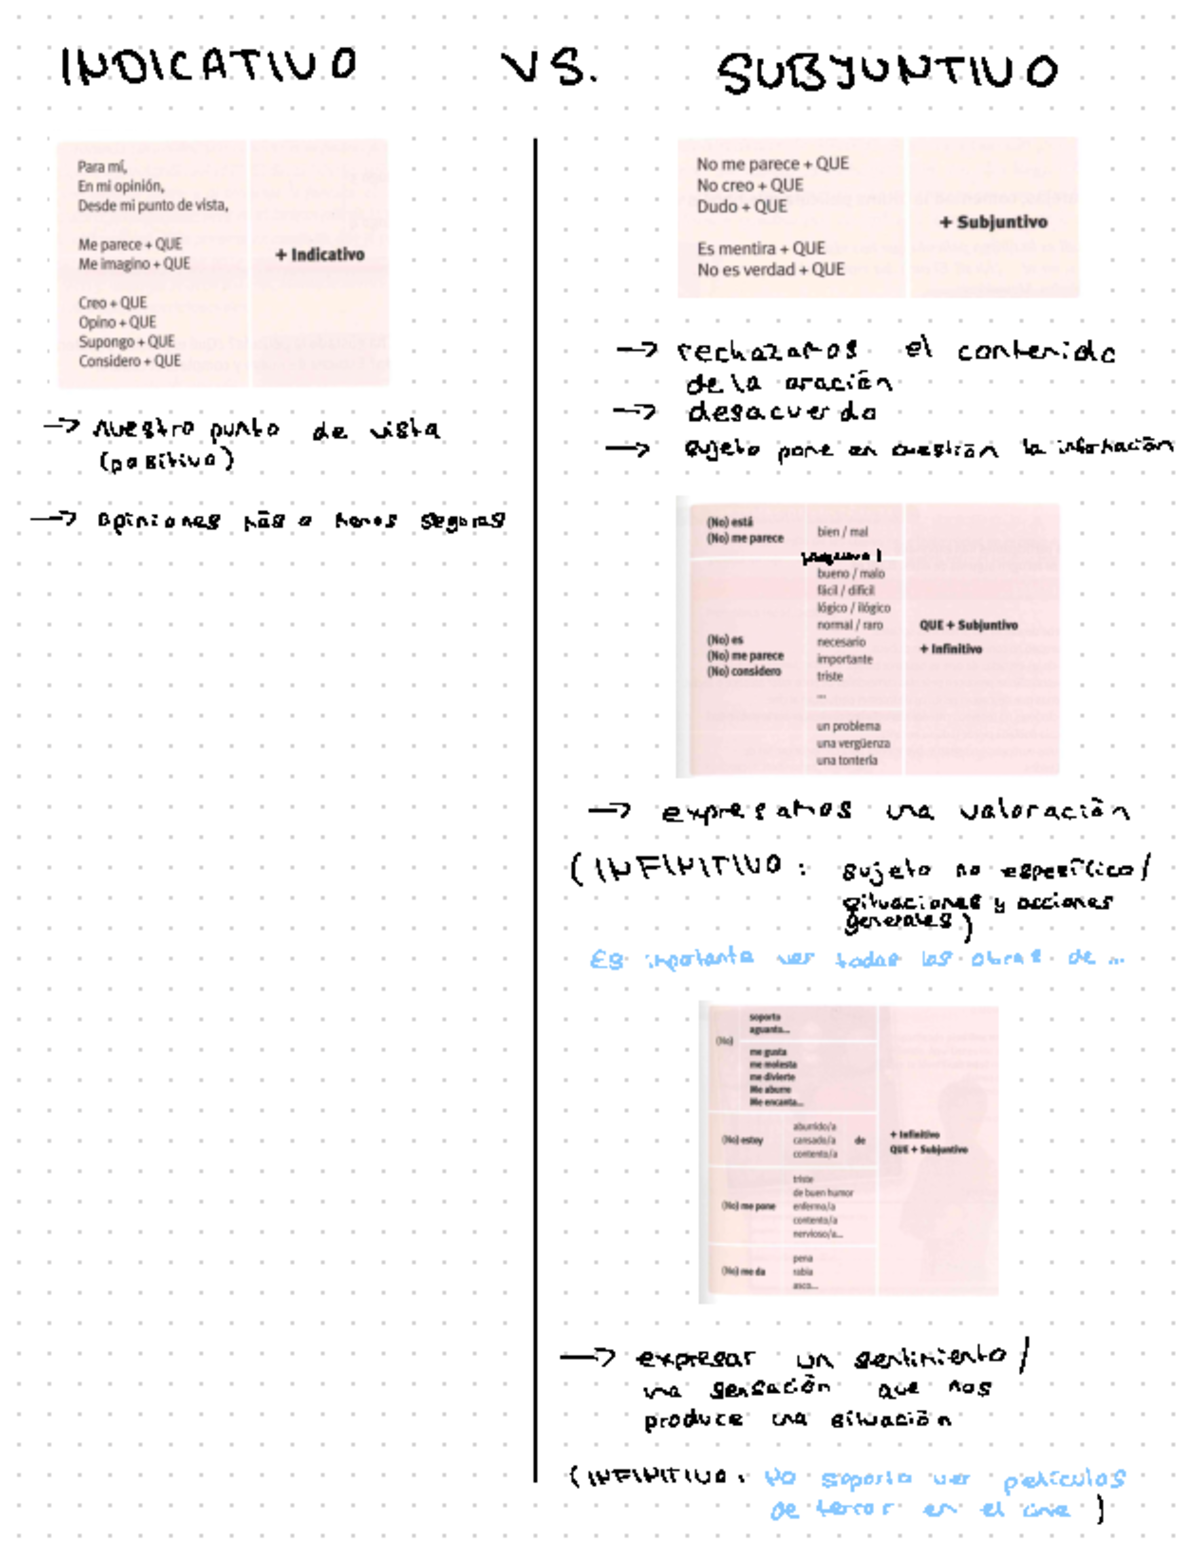 INDICATIVO VS. SUBJUNTIVO
Para mí,
En mi opinión,
Desde mi punto de vista,
Me parece + QUE
Me imagino + QUE
+ Indicativo
Creo + QUE
Opino + QUE
Supongo + QUE
Considero + QUE
→ nuestro punto de vista
(positivo)
→ opiniones más o menos seguras
No me parece + QUE
No creo + QUE
Dudo + QUE
+ Subjuntivo
Es mentira + QUE
No es verdad + QUE
→ rechazamos el contenido
de la oración
→ desacuerdo
→ sujeto pone en cuestión la información
(No) está
(No) me parece
bien / mal
bueno / malo
fácil / difícil
lógico / ilógico
normal / raro
necesario
importante
triste
...
(No) es
(No) me parece
(No) considero
QUE + Subjuntivo
+ Infinitivo
un problema
una vergüenza
una tontería
→ expresamos una valoración
(INFINITIVO: sujeto no específico/
situaciones y acciones
generales)
Es importante ver todas las obras de ...
(No)
soporto
aguanto...
me gusta
me molesta
me divierte
Me aburre
Me encanta...
(No) estoy
aburrido/a
cansado/a
contento/a
de
+ Infinitivo
QUE + Subjuntivo
(No) me pone
triste
de buen humor
enfermo/a
contento/a
nervioso/a...
(No) me da
pena
rabia
asco...
→ expresar un sentimiento/
una sensación que nos
produce una situación
(INFINITIVO: No soporto ver películas
de terror en el cine)